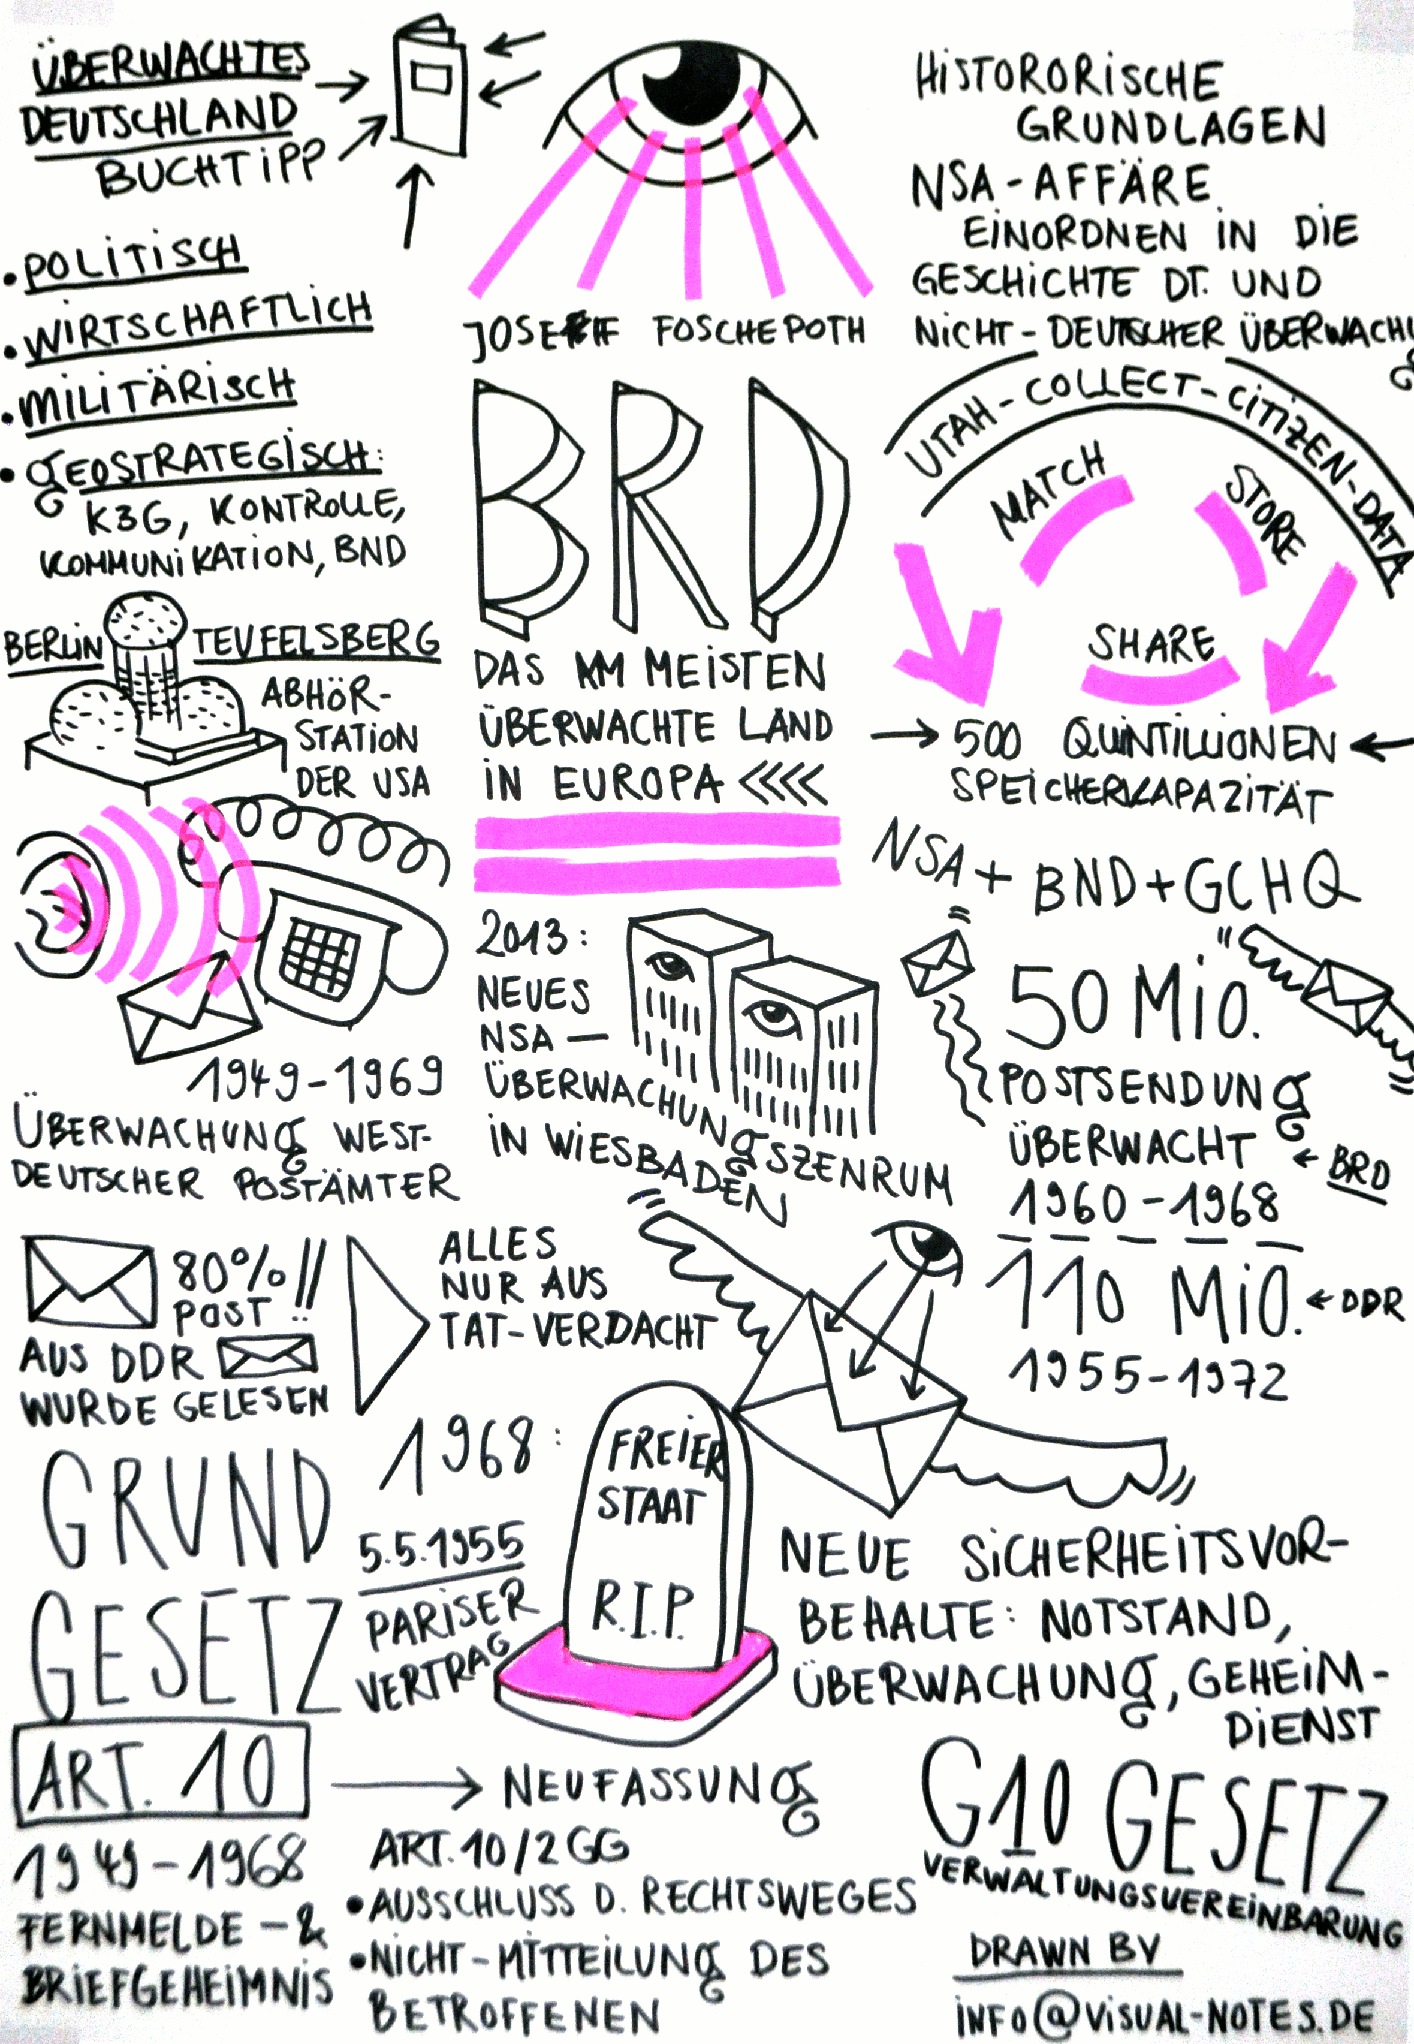 ÜBERWACHTES
DEUTSCHLAND
BUCHTIPP
• POLITISCH
• WIRTSCHAFTLICH
• MILITÄRISCH
• GEOSTRATEGISCH:
K3G, KONTROLLE,
KOMMUNIKATION, BND
BERLIN TEUFELSBERG
ABHÖR-
STATION
DER USA
1949-1969
ÜBERWACHUNG WEST-
DEUTSCHER POSTÄMTER
80% !!
POST
AUS DDR
WURDE GELESEN
ALLES
NUR AUS
TAT-VERDACHT
JOSEF FOSCHEPOTH
BRD
DAS AM MEISTEN
ÜBERWACHTE LAND
IN EUROPA <<<<
2013:
NEUES
NSA-
ÜBERWACHUNGSZENRUM
IN WIESBADEN
HISTORORISCHE
GRUNDLAGEN
NSA-AFFÄRE
EINORDNEN IN DIE
GESCHICHTE DT. UND
NICHT-DEUTSCHER ÜBERWACHUNG
UTAH-COLLECT-CITIZEN-DATA
MATCH
STORE
SHARE
500 QUINTILLIONEN
SPEICHERKAPAZITÄT
NSA + BND + GCHQ
50 MIO.
POSTSENDUNG
ÜBERWACHT
BRD
1960-1968
110 MIO.
DDR
1955-1972
GRUND
GESETZ
ART. 10
1949-1968
FERNMELDE-&
BRIEFGEHEIMNIS
1968:
5.5.1955
PARISER
VERTRAG
FREIER
STAAT
R.I.P.
NEUE SICHERHEITSVOR-
BEHALTE: NOTSTAND,
ÜBERWACHUNG, GEHEIM-
DIENST
NEUFASSUNG
ART. 10/2 GG
• AUSSCHLUSS D. RECHTSWEGES
• NICHT-MITTEILUNG DES
BETROFFENEN
G10 GESETZ
VERWALTUNGSVEREINBARUNG
DRAWN BY
INFO@VISUAL-NOTES.DE